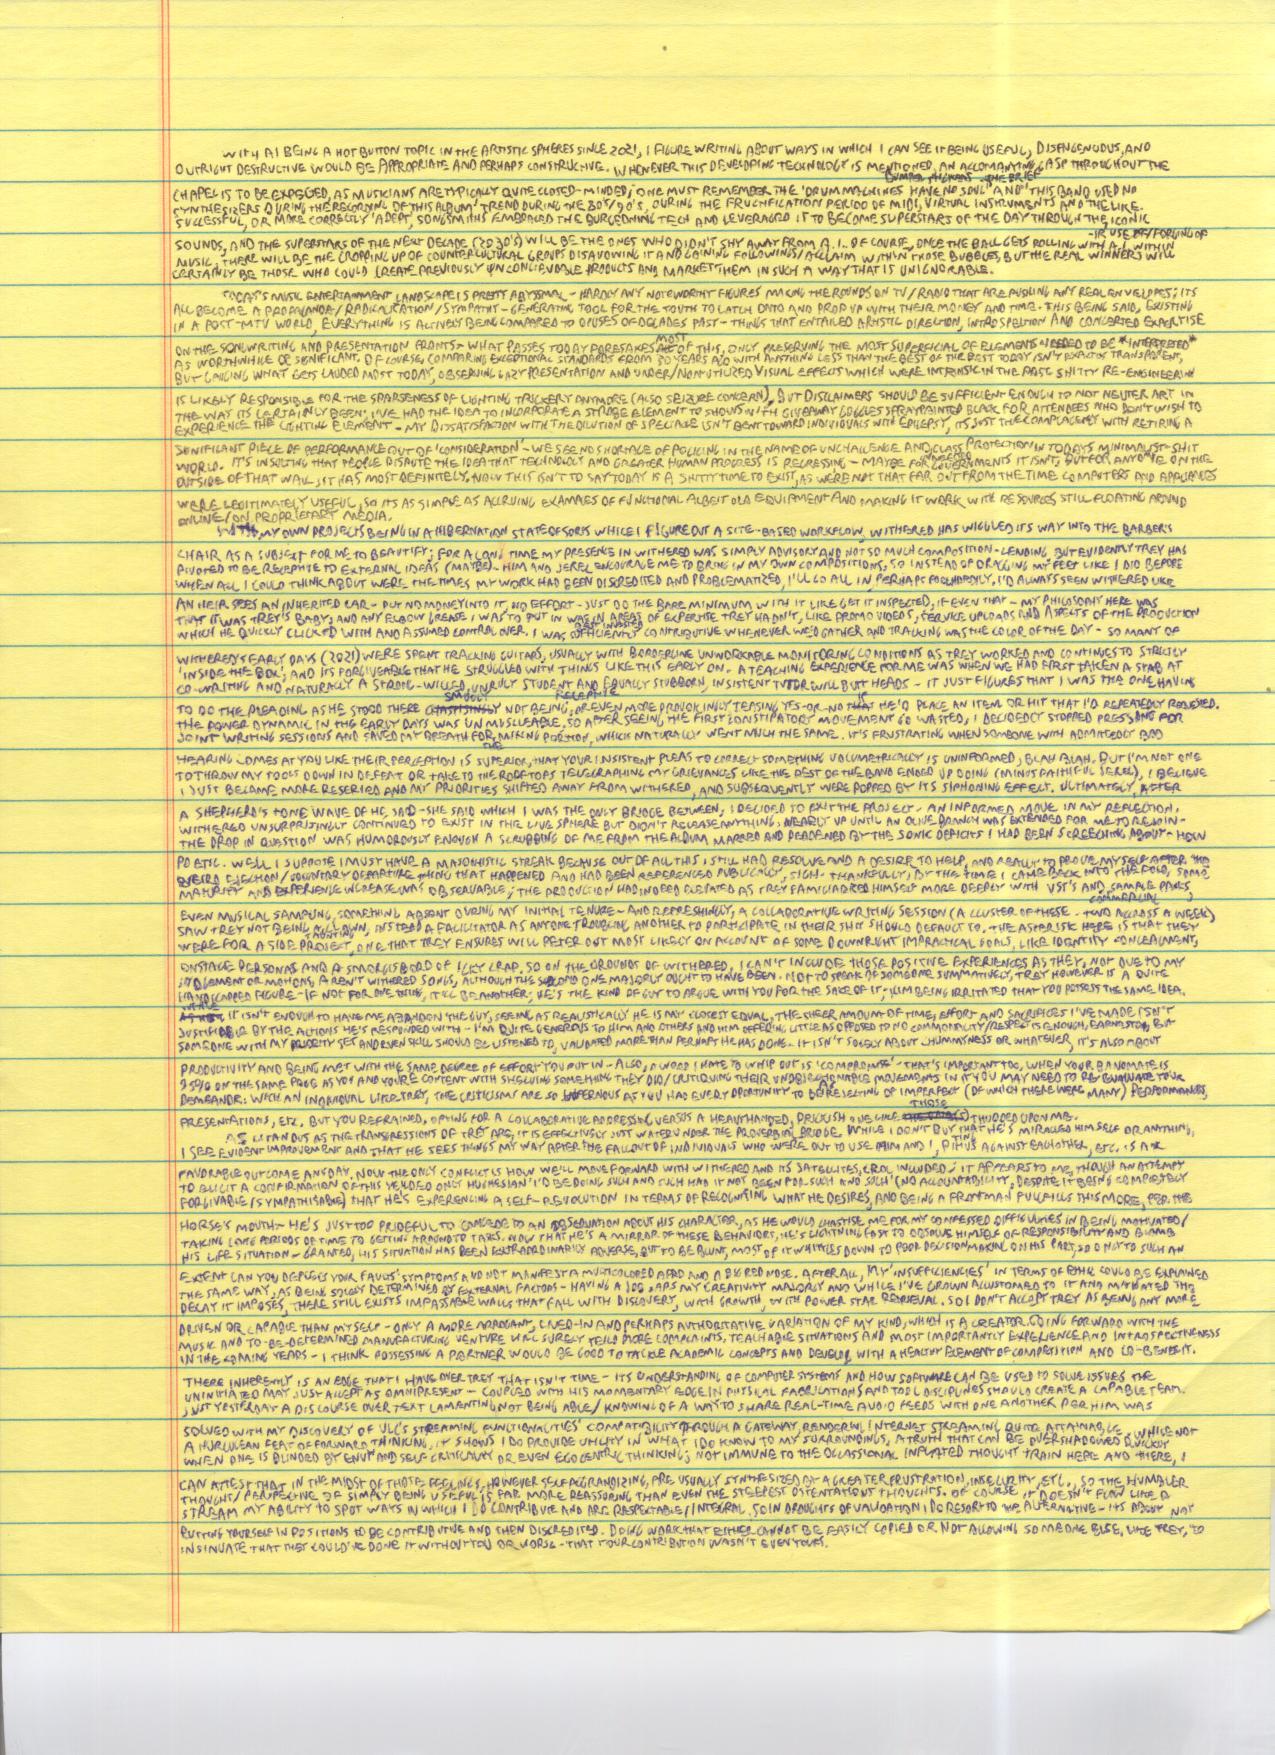 WITH AI BEING A HOT BUTTON TOPIC IN THE ARTISTIC SPHERES SINCE 2021, I FIGURE WRITING ABOUT WAYS IN WHICH I CAN SEE IT BEING USEFUL, DISENGENUOUS, AND
OUTRIGHT DESTRUCTIVE WOULD BE APPROPRIATE AND PERHAPS CONSTRUCTIVE. WHENEVER THIS DEVELOPING TECHNOLOGY IS MENTIONED, AN ACCOMANYING GASP THROUGHOUT THE
CHAPEL IS TO BE EXPECTED, AS MUSICIANS ARE TYPICALLY QUITE CLOSED-MINDED; ONE MUST REMEMBER THE 'DRUM MACHINES HAVE NO SOUL' AND 'THIS BAND USED NO
SYNTHESIZERS DURING THE RECORDING OF THIS ALBUM' TREND DURING THE 80'S/90'S, DURING THE FRUCIFICATION PERIOD OF MIDI, VIRTUAL INSTRUMENTS AND THE LIKE.
SUCCESSFUL, OR MORE CORRECTLY 'ADEPT', SONGSMITHS EMBRACED THE BURGEONING TECH AND LEVERAGED IT TO BECOME SUPERSTARS OF THE DAY THROUGH THE ICONIC
SOUNDS, AND THE SUPERSTARS OF THE NEXT DECADE (2030'S) WILL BE THE ONES WHO DIDN'T SHY AWAY FROM A.I.. OF COURSE, ONCE THE BALL GETS ROLLING WITH A.I. WITHIN
MUSIC, THERE WILL BE THE CROPPING UP OF COUNTERCULTURAL GROUPS DISAVOWING IT AND GAINING FOLLOWINGS/ACCLAIM WITHIN THOSE BUBBLES, BUT THE REAL WINNERS WILL
CERTAINLY BE THOSE WHO COULD CREATE PREVIOUSLY UNCONCIEVABLE PRODUCTS AND MARKET THEM IN SUCH A WAY THAT IS UNIGNORABLE.
TODAY'S MUSIC ENTERTAINMENT LANDSCAPE IS PRETTY ABYSMAL - HARDLY ANY NOTEWORTHY FIGURES MAKING THE ROUNDS ON TV/RADIO THAT ARE PUSHING ANY REAL ENVELOPES; ITS
ALL BECOME A PROPAGANDA/RADICALIZATION/SYMPATHY-GENERATING TOOL FOR THE YOUTH TO LATCH ONTO AND PROP UP WITH THEIR MONEY AND TIME. THIS BEING SAID, EXISTING
IN A POST-MTV WORLD, EVERYTHING IS ACTIVELY BEING COMPARED TO OPUSES OF DECADES PAST - THINGS THAT ENTAILED ARTISTIC DIRECTION, INTROSPECTION AND CONCERTED EXPERTISE
ON THE SONGWRITING AND PRESENTATION FRONTS - WHAT PASSES TODAY FORESAKES MOST OF THIS, ONLY PRESERVING THE MOST SUPERFICIAL OF ELEMENTS NEEDED TO BE *INTERPRETED*
AS WORTHWHILE OR SIGNIFICANT. OF COURSE, COMPARING EXCEPTIONAL STANDARDS FROM 30 YEARS AGO WITH ANYTHING LESS THAN THE BEST OF THE BEST TODAY ISN'T EXACTLY TRANSPARENT,
BUT GAUGING WHAT GETS LAUDED MOST TODAY, OBSERVING LAZY PRESENTATION AND UNDER/NON-UTILIZED VISUAL EFFECTS WHICH WERE INTRINSIC IN THE PAST. SHITTY RE-ENGINEERING
IS LIKELY RESPONSIBLE FOR THE SPARSENESS OF LIGHTING TRICKERY ANYMORE (ALSO SEIZURE CONCERN), BUT DISCLAIMERS SHOULD BE SUFFICIENT ENOUGH TO NOT NEUTER ART IN
THE WAY ITS CERTAINLY BEEN; I'VE HAD THE IDEA TO INCORPORATE A STROBE ELEMENT TO SHOWS WITH GIVEAWAY GOGGLES SPRAYPAINTED BLACK FOR ATTENDEES WHO DON'T WISH TO
EXPERIENCE THE LIGHTING ELEMENT - MY DISSATISFACTION WITH THE DILUTION OF SPECTACLE ISN'T BENT TOWARD INDIVIDUALS WITH EPILEPSY, ITS JUST THE COMPLACENCY WITH RETIRING A
SENIFICANT PIECE OF PERFORMANCE OUT OF 'CONSIDERATION' - WE SEE NO SHORTAGE OF POLICING IN THE NAME OF UNCHALLENGE AND CLASS PROTECTION IN TODAYS MINIMALIST-SHIT
WORLD. IT'S INSULTING THAT PEOPLE DISPUTE THE IDEA THAT TECHNOLOGY AND GREATER HUMAN PROGRESS IS REGRESSING - MAYBE FOR GOVERNMENTS IT ISN'T, BUT FOR ANYONE ON THE
OUTSIDE OF THAT WALL, IT HAS MOST DEFINITELY. NOW THIS ISN'T TO SAY TODAY IS A SHITTY TIME TO EXIST, AS WERE NOT THAT FAR OUT FROM THE TIME COMPUTERS AND APPLIANCES
WERE LEGITIMATELY USEFUL, SO ITS AS SIMPLE AS ACCRUING EXAMPLES OF FUNCTIONAL ALBEIT OLD EQUIPMENT AND MAKING IT WORK WITH RESOURCES STILL FLOATING AROUND
ONLINE/ON PROPRIETARY MEDIA.
WITH MY OWN PROJECTS BEING IN A HIBERNATION STATE OF SORTS WHILE I FIGURE OUT A SITE-BASED WORKFLOW, WITHERED HAS WIGGLED ITS WAY INTO THE BARBER'S
CHAIR AS A SUBJECT FOR ME TO BEAUTIFY; FOR A LONG TIME MY PRESENCE IN WITHERED WAS SIMPLY ADVISORY AND NOT SO MUCH COMPOSITION-LENDING BUT EVIDENTLY TREY HAS
PIVOTED TO BE RECEPTIVE TO EXTERNAL IDEAS (MAYBE) - HIM AND JEREL ENCOURAGE ME TO BRING IN MY OWN COMPOSITIONS, SO INSTEAD OF DRAGGING MY FEET LIKE I DID BEFORE
WHEN ALL I COULD THINK ABOUT WERE THE TIMES MY WORK HAD BEEN DISCREDITED AND PROBLEMATIZED, I'LL GO ALL IN PERHAPS FOOLHARDILY. I'D ALWAYS SEEN WITHERED LIKE
AN HEIR SEES AN INHERITED CAR - PUT NO MONEY INTO IT, NO EFFORT - JUST DO THE BARE MINIMUM WITH IT LIKE GET IT INSPECTED, IF EVEN THAT - MY PHILOSOPHY HERE WAS
THAT IT WAS TREY'S BABY; AND ANY ELBOW GREASE I WAS TO PUT IN WAS IN AREAS OF EXPERTISE TREY HADN'T, LIKE PROMO VIDEOS, SERVICE UPLOADS AND ASPECTS OF THE PRODUCTION
WHICH HE QUICKLY CLICKED WITH AND ASSUMED CONTROL OVER. I WAS SUFFICIENTLY CONTRIBUTIVE WHENEVER WE'D GATHER AND TRACKING WAS THE COLOR OF THE DAY - SO MANY OF
WITHERED'S EARLY DAYS (2021) WERE SPENT TRACKING GUITARS, USUALLY WITH BORDERLINE UNWORKABLE MONITORING CONDITIONS AS TREY WORKED AND CONTINUES TO STRICTLY
'INSIDE THE BOX'; AND ITS FORGIVEABLE THAT HE STRUGGLED WITH THINGS LIKE THIS EARLY ON. A TEACHING EXPERIENCE FOR ME WAS WHEN WE HAD FIRST TAKEN A STAB AT
CO-WRITING AND NATURALLY A STRONG-WILLED, UNRULY STUDENT AND EQUALLY STUBBORN, INSISTENT TUTOR WILL BUTT HEADS - IT JUST FIGURES THAT I WAS THE ONE HAVING
TO DO THE PLEADING AS HE STOOD THERE SMUGLY NOT BEING RECEPTIVE, OR EVEN MORE PROVOKINGLY TEASING YES-OR-NO IF HE'D PLACE AN ITEM OR HIT THAT I'D REPEATEDLY REQUESTED.
THE POWER DYNAMIC IN THE EARLY DAYS WAS UNMUSCLEABLE, SO AFTER SEEING THE FIRST CONSTIPATORY MOVEMENT GO WASTED, I DECIDEDLY STOPPED PRESSING FOR
JOINT WRITING SESSIONS AND SAVED MY BREATH FOR THE MIXING PORTION, WHICH NATURALLY WENT MUCH THE SAME. IT'S FRUSTRATING WHEN SOMEONE WITH ADMITTEDLY BAD
HEARING COMES AT YOU LIKE THEIR PERCEPTION IS SUPERIOR, THAT YOUR INSISTENT PLEAS TO CORRECT SOMETHING VOLUMETRICALLY IS UNINFORMED, BLAH BLAH. BUT I'M NOT ONE
TO THROW MY TOOLS DOWN IN DEFEAT OR TAKE TO THE ROOFTOPS TELEGRAPHING MY GRIEVANCES LIKE THE REST OF THE BAND ENDED UP DOING (MINUS FAITHFUL JEREL), I BELIEVE
I JUST BECAME MORE RESERVED AND MY PRIORITIES SHIFTED AWAY FROM WITHERED, AND SUBSEQUENTLY WERE POPPED BY ITS SIPHONING EFFECT. ULTIMATELY, AFTER
A SHEPHERD'S TONE WAVE OF HE SAID-SHE SAID WHICH I WAS THE ONLY BRIDGE BETWEEN, I DECIDED TO EXIT THE PROJECT - AN INFORMED MOVE IN MY REFLECTION.
WITHERED UNSURPRISINGLY CONTINUED TO EXIST IN THE LIVE SPHERE BUT DIDN'T RELEASE ANYTHING, NEARLY UP UNTIL AN OLIVE BRANCH WAS EXTENDED FOR ME TO REJOIN -
THE DROP IN QUESTION WAS HUMOROUSLY ENOUGH A SCRUBBING OF ME FROM THE ALBUM MARRED AND DEADENED BY THE SONIC DEFICITS I HAD BEEN SCREECHING ABOUT - HOW
POETIC. WELL I SUPPOSE I MUST HAVE A MASOCHISTIC STREAK BECAUSE OUT OF ALL THIS, I STILL HAD RESOLVE AND A DESIRE TO HELP, AND REALLY TO PROVE MYSELF AFTER THE
WEIRD EJECTION/VOLUNTARY DEPARTURE THING THAT HAPPENED AND HAD BEEN REFERENCED PUBLICALLY, SIGH. THANKFULLY, BY THE TIME I CAME BACK INTO THE FOLD, SOME
MATURITY AND EXPERIENCE INCREASE WAS OBSERVABLE; THE PRODUCTION HAD INDEED ELEVATED AS TREY FAMILIARIZED HIMSELF MORE DEEPLY WITH VST'S AND COMMERCIAL SAMPLE PACKS,
EVEN MUSICAL SAMPLING, SOMETHING ABSENT DURING MY INITIAL TENURE - AND REFRESHINGLY, A COLLABORATIVE WRITING SESSION (A CLUSTER OF THESE - TWO ACROSS A WEEK)
SAW TREY NOT BEING A TAUNTING CLOWN, INSTEAD A FACILITATOR AS ANYONE TROUBLING ANOTHER TO PARTICIPATE IN THEIR SHIT SHOULD DEFAULT TO. THE ASTERISK HERE IS THAT THEY
WERE FOR A SIDE PROJECT, ONE THAT TREY ENSURES WILL PETER OUT MOST LIKELY ON ACCOUNT OF SOME DOWNRIGHT IMPRACTICAL GOALS, LIKE IDENTITY CONCEALMENT,
ONSTAGE PERSONAS AND A SMORGISBORD OF ICKY CRAP. SO ON THE GROUNDS OF WITHERED, I CAN'T INCLUDE THOSE POSITIVE EXPERIENCES AS THEY, NOT DUE TO MY
JUDGEMENT OR MOTIONS, AREN'T WITHERED SONGS, ALTHOUGH THE SECOND ONE MAJORLY OUGHT TO HAVE BEEN. NOT TO SPEAK OF SOMEONE SUMMATIVELY, TREY HOWEVER IS A QUITE
HANDICAPPED FIGURE - IF NOT FOR ONE THING, IT'LL BE ANOTHER; HE'S THE KIND OF GUY TO ARGUE WITH YOU FOR THE SAKE OF IT; HIM BEING IRRITATED THAT YOU POSSESS THE SAME IDEA.
WHILE IT ISN'T ENOUGH TO HAVE ME ABANDON THE GUY, SEEING AS REALISTICALLY HE IS MY CLOSEST EQUAL, THE SHEER AMOUNT OF TIME, EFFORT AND SACRIFICES I'VE MADE ISN'T
JUSTIFIABLE BY THE ACTIONS HE'S RESPONDED WITH - I'M QUITE GENEROUS TO HIM AND OTHERS AND HIM OFFERING LITTLE AS OPPOSED TO NO COMMONALITY/RESPECT IS ENOUGH, EARNESTLY, BUT
SOMEONE WITH MY PRIORITY SET AND EVEN SKILL SHOULD BE LISTENED TO, VALIDATED MORE THAN PERHAPS HE HAS DONE. IT ISN'T SOLELY ABOUT CHUMMYNESS OR WHATEVER, IT'S ALSO ABOUT
PRODUCTIVITY AND BEING MET WITH THE SAME DEGREE OF EFFORT YOU PUT IN - ALSO, A WORD I HATE TO WHIP OUT IS 'COMPROMISE' - THAT'S IMPORTANT TOO, WHEN YOUR BANDMATE IS
ON THE SAME PAGE AS YOU AND YOU'RE CONTENT WITH SHELVING SOMETHING THEY DID/CRITIQUING THEIR MOVEMENTS IN IT YOU MAY NEED TO RE-EVALUATE YOUR
DEMEANOR. WITH AN INDIVIDUAL LIKE TREY, THE CRITICISMS ARE SO INFERNOUS AS YOU HAD EVERY OPORTUNITY TO BE AS REJECTING OF IMPERFECT (OF WHICH THERE WERE MANY) PERFORMANCES,
PRESENTATIONS, ETC. BUT YOU REFRAINED, OPTING FOR A COLLABORATIVE ADDRESSING VERSUS A HEAVYHANDED, PRICKISH ONE LIKE THOSE THUDDED UPON ME.
AS LITANOUS AS THE TRANSGRESSIONS OF TREY ARE, IT IS EFFECTIVELY JUST WATER UNDER THE PROVERBIAL BRIDGE. WHILE I DON'T BUY THAT HE'S MIRACLED HIMSELF OR ANYTHING,
I SEE EVIDENT IMPROVEMENT AND THAT HE SEES THINGS MY WAY AFTER THE FALLOUT OF INDIVIDUALS WHO WERE OUT TO USE HIM AND I, PITTING US AGAINST EACHOTHER, ETC. IS A
FAVORABLE OUTCOME ANYDAY. NOW THE ONLY CONFLICT IS HOW WE'LL MOVE FORWARD WITH WITHERED AND ITS SATELLITES, INCLUDED; IT APPEARS TO ME, THOUGH AN ATTEMPT
TO ELICIT A CONFIRMATION OF THIS YIELDED ONLY HUGHESIAN 'I'D BE DOING SUCH AND SUCH HAD IT NOT BEEN FOR SUCH AND SUCH' (NO ACCOUNTABILITY, DESPITE IT BEING COMPLETELY
FORGIVABLE/SYMPATHISABLE) THAT HE'S EXPERIENCING A SELF-REVOLUTION IN TERMS OF RECOGNIZING WHAT HE DESIRES, AND BEING A FRONTMAN FULFILLS THIS MORE, PER THE
HORSE'S MOUTH - HE'S JUST TOO PRIDEFUL TO CONCEDE TO AN OBSERVATION ABOUT HIS CHARACTER, AS HE WOULD CHASTISE ME FOR MY CONFESSED DIFFICULTIES IN BEING MOTIVATED/
TAKING LONG PERIODS OF TIME TO GETTING AROUND TO TASKS. NOW THAT HE'S A MIRROR OF THESE BEHAVIORS, HE'S LIGHTNING FAST TO ABSOLVE HIMSELF OF RESPONSIBILITY AND BLAME
HIS LIFE SITUATION - GRANTED, HIS SITUATION HAS BEEN EXTRAORDINARILY ADVERSE, BUT TO BE BLUNT, MOST OF IT WHITTLES DOWN TO POOR DECISIONMAKING ON HIS PART, SO ONLY TO SUCH AN
EXTENT CAN YOU YOUR FAULTS' SYMPTOMS AND NOT MANIFEST A MULTICOLORED AFRO AND A BIG RED NOSE. AFTER ALL, MY 'INSUFFICIENCIES' IN TERMS OF ETHIC COULD BE EXPLAINED
THE SAME WAY, AS BEING SOLELY DETERMINED BY EXTERNAL FACTORS - HAVING A JOB ZAPS MY CREATIVITY MAJORLY AND WHILE I'VE GROWN ACCUSTOMED TO IT AND MITIGATED THE
DECAY IT IMPOSES, THERE STILL EXISTS IMPASSABLE WALLS THAT FALL WITH DISCOVERY, WITH GROWTH, WITH POWER STAR RETRIEVAL. SO I DON'T ACCEPT TREY AS BEING ANY MORE
DRIVEN OR CAPABLE THAN MYSELF - ONLY A MORE ARROGANT, LIVED-IN AND PERHAPS AUTHORITATIVE VARIATION OF MY KIND, WHICH IS A CREATOR. GOING FORWARD WITH THE
MUSIC AND TO-BE-DETERMINED MANUFACTURING VENTURE WILL SURELY YEILD MORE COMPLAINTS, TEACHABLE SITUATIONS AND MOST IMPORTANTLY EXPERIENCE AND INTROSPECTIVENESS
IN THE COMING YEARS - I THINK POSSESSING A PARTNER WOULD BE GOOD TO TACKLE ACADEMIC CONCEPTS AND DEVELOP WITH A HEALTHY ELEMENT OF COMPETITION AND CO-BENEFIT.
THERE INHERENTLY IS AN EDGE THAT I HAVE OVER TREY THAT ISN'T TIME - ITS UNDERSTANDING OF COMPUTER SYSTEMS AND HOW SOFTWARE CAN BE USED TO SOLVE ISSUES THE
UNINITIATED MAY JUST ACCEPT AS OMNIPRESENT - COUPLED WITH HIS MOMENTARY EDGE IN PHYSICAL FABRICATIONS AND TOOL DISCIPLINES SHOULD CREATE A CAPABLE TEAM.
JUST YESTERDAY A DISCOURSE OVER TEXT LAMENTING NOT BEING ABLE/KNOWING OF A WAY TO SHARE REAL-TIME AUDIO FEEDS WITH ONE ANOTHER PER HIM WAS
SOLVED WITH MY DISCOVERY OF VLC'S STREAMING FUNCTIONALITIES' COMPATIBILITY THROUGH A GATEWAY, RENDERING INTERNET STREAMING QUITE ATTAINABLE. WHILE NOT
A HURCULEAN FEAT OF FORWARD THINKING, IT SHOWS I DO PROVIDE UTILITY IN WHAT I DO KNOW TO MY SURROUNDINGS, A TRUTH THAT CAN BE OVERSHADOWED QUICKLY
WHEN ONE IS BLINDED BY ENVY AND SELF CRITICALITY OR EVEN EGOCENTRIC THINKING; NOT IMMUNE TO THE OCCASSIONAL INFLATED THOUGHT TRAIN HERE AND THERE, I
CAN ATTEST THAT IN THE MIDST OF THOSE FEELINGS, HOWEVER SELF AGGRANDIZING, ARE USUALLY SYNTHESIZED BY A GREATER FRUSTRATION, INSECURITY, ETC., SO THE HUMBLER
THOUGHT/PERSPECTIVE OF SIMPLY BEING USEFUL IS FAR MORE REASSURING THAN EVEN THE STEEPEST OSTENTATIOUS THOUGHTS. OF COURSE, IT DOESN'T FLOW LIKE A
STREAM MY ABILITY TO SPOT WAYS IN WHICH I DO CONTRIBUTE AND ARE RESPECTABLE/INTEGRAL, SO IN DROUGHTS OF VALIDATION I DO RESORT TO THE ALTERNATIVE - ITS ABOUT NOT
PUTTING YOURSELF IN POSITIONS TO BE CONTRIBUTIVE AND THEN DISCREDITED. DOING WORK THAT EITHER CANNOT BE EASILY COPIED OR NOT ALLOWING SOMEONE ELSE, LIKE TREY, TO
INSINUATE THAT THEY COULD'VE DONE IT WITHOUT YOU OR WORSE - THAT YOUR CONTRIBUTION WASN'T EVEN YOURS.